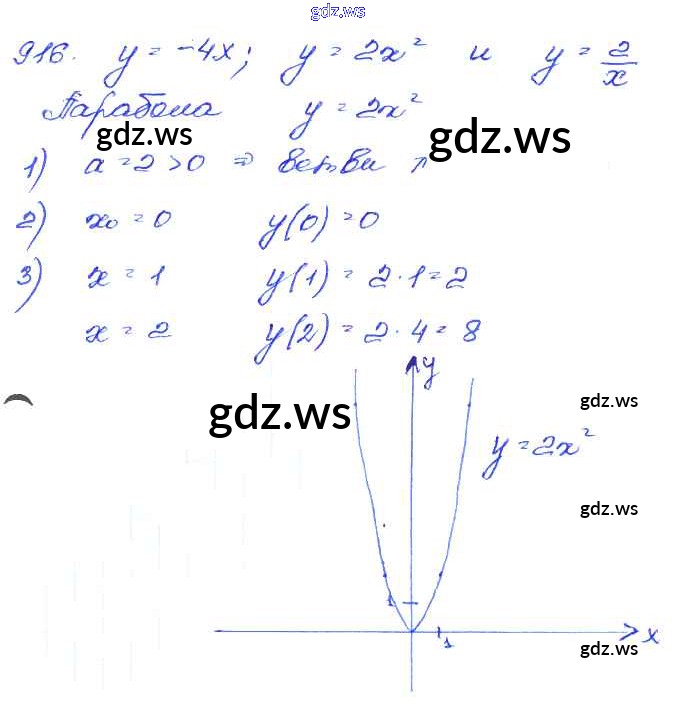 gdz.ws
916. y = -4x; y = 2x² и y = 2/x
Парабола y = 2x²
gdz.ws gdz.ws
1) a = 2 > 0 ⇒ ветви ↑
2) x₀ = 0 y(0) = 0
3) x = 1 y(1) = 2·1 = 2
x = 2 y(2) = 2·4 = 8
y
gdz.ws gdz.ws
y = 2x²
gdz.ws
1
1 x
gdz.ws